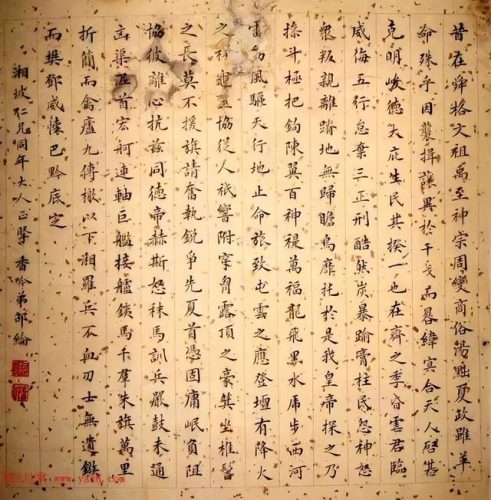 昔在舜格文祖禹至神宗周變商俗湯黜夏政雖革
命殊乎因襲揖讓異於干戈而晷緯冥合天人啓惎
克明峻德大庇生民其揆一也在齊之季昏虐君臨
威侮五行怠棄三正刑酷然炭暴踰膏柱民怨神怒
衆叛親離踣地無歸瞻烏靡託於是我皇帝拯之乃
操斗極把鈎陳翼百神禔萬福龍飛黑水虎步西河
雷動風驅天行地止命旅致屯雲之應登壇有降火
之祥龜筮協從人祇響附穿胷露頂之豪箕坐椎髻
之長莫不援旗請奮執銳爭先夏首憑固庸岷負阻
協彼離心抗茲同德帝赫斯怒秣馬訓兵嚴鼓未通
凶渠泥首宏舸連軸巨艦接艫鐵馬千羣朱旗萬里
折簡而禽廬九傳檄以下湘羅兵不血刃士無遺鏃
而樊鄧威懷巴黔底定
湘坡仁兄同年大人正 香吟弟邵綸